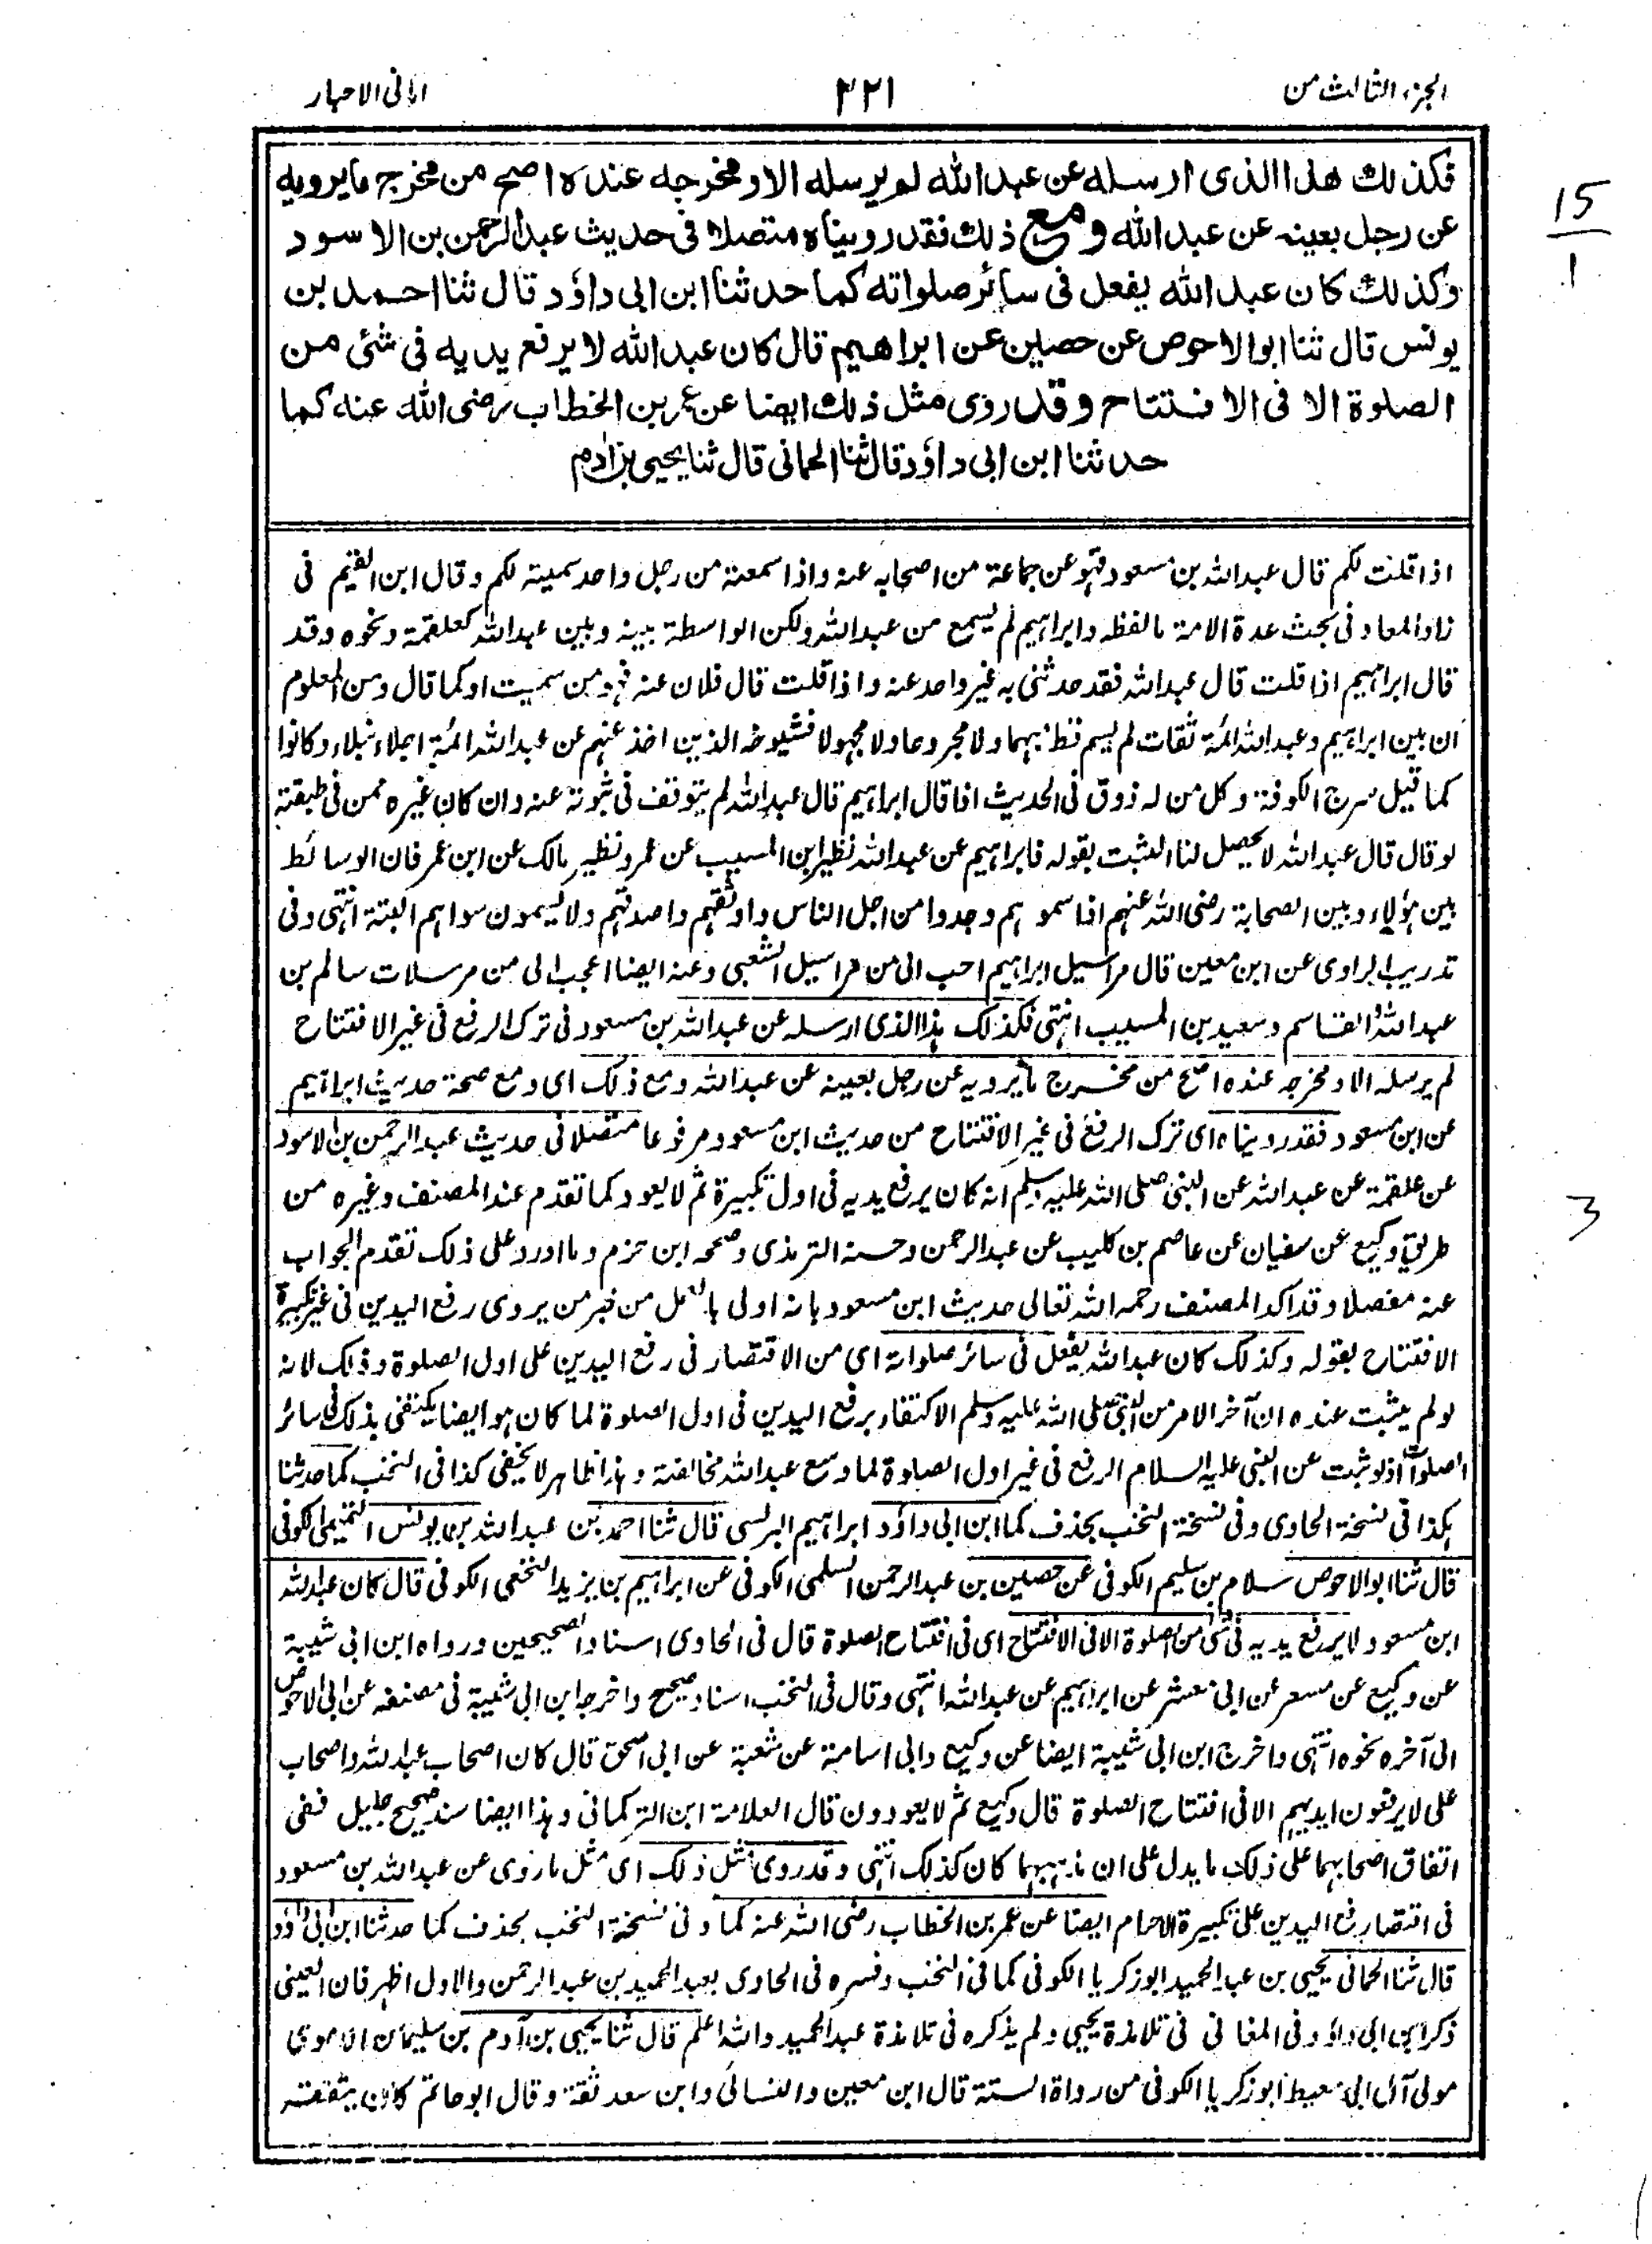 الجزء الثالث من
٢٢١
امانی الاحبار
فكذلك هذا الذی ارسله عن عبد الله لم یرسله الا ومخرجه عنده اصح من مخرج ما یرویه
عن رجل بعینه عن عبد الله ومع ذلك فقد رویناه متصلا فی حدیث عبد الرحمن بن الاسود
وكذلك كان عبد الله یفعل فی سائر صلواته كما حدثنا ابن ابی داؤد قال ثنا احمد بن
یونس قال ثنا ابو الاحوص عن حصین عن ابراهیم قال كان عبد الله لا یرفع یدیه فی شئ من
الصلوة الا فی الافتتاح وقد روی مثل ذلك ایضا عن عمر بن الخطاب رضی الله عنه كما
حدثنا ابن ابی داؤد قال ثنا الحمانی قال ثنا یحیی بن اٰدم
اذا قلت لکم قال عبد الله بن مسعود فهو عن جماعة من اصحابه عنه واذا سمعته من رجل واحد سمیته لکم وقال ابن القیم فی
زاد المعاد فی بحث عدة الامة ما لفظه وابراہیم لم یسمع من عبد الله ولکن الواسطة بینه وبین عبد الله کعلقمة ونحوه وقد
قال ابراہیم اذا قلت قال عبد الله فقد حدثنی به غیر واحد عنه واذا قلت قال فلان عنه فهو من سمیت او کما قال ومن المعلوم
ان بین ابراہیم وعبد الله ائمة ثقات لم یسم قط متہما ولا مجروحا ولا مجہولا فشیوخہ الذین اخذ عنہم عن عبد الله ائمة اجلاء نبلاء وکانوا
کما قیل سرج الکوفة وکل من له ذوق فی الحدیث اذا قال ابراہیم قال عبد الله لم یتوقف فی ثبوته عنه وان کان غیره ممن فی طبقته
لو قال قال عبد الله لا یحصل لنا الثبت بقوله فابراہیم عن عبد الله نظیر ابن المسیب عن عمر ونظیر مالک عن ابن عمر فان الوسائط
بین ہؤلاء وبین الصحابة رضی الله عنہم اذا سموہم وجدوا من اجل الناس واوثقہم واصدقہم ولا یسمون سواہم البتة انتہی وفی
تدریب الراوی عن ابن معین قال مراسیل ابراہیم احب الی من مراسیل الشعبی وعنه ایضا اعجب الی من مرسلات سالم بن
عبد الله والقاسم وسعید بن المسیب انتہی فکذلک ہذا الذی ارسله عن عبد الله بن مسعود فی ترک الرفع فی غیر الافتتاح
لم یرسله الا ومخرجه عنده اصح من مخرج ما یرویه عن رجل بعینه عن عبد الله ومع ذلک ای ومع صحة حدیث ابراہیم
عن ابن مسعود فقد رویناه ای ترک الرفع فی غیر الافتتاح من حدیث ابن مسعود مرفوعا متصلا فی حدیث عبد الرحمن بن الاسود
عن علقمة عن عبد الله عن النبی صلی الله علیه وسلم انه کان یرفع یدیه فی اول تکبیرة ثم لا یعود کما تقدم عند المصنف وغیره من
طریق وکیع عن سفیان عن عاصم بن کلیب عن عبد الرحمن وحسنه الترمذی وصححه ابن حزم وما اورد علی ذلک تقدم الجواب
عنه مفصلا وقد اکد المصنف رحمه الله تعالی حدیث ابن مسعود بانه اولی بالعمل من خبر من یروی رفع الیدین فی غیر تکبیرة
الافتتاح بقوله وکذلک کان عبد الله یفعل فی سائر صلواته ای من الاقتصار فی رفع الیدین علی اول الصلوة وذلک لانه
لو لم یثبت عنده ان آخر الامر من النبی صلی الله علیه وسلم الاکتفاء برفع الیدین فی اول الصلوة لما کان ہو ایضا یکتفی بذلک فی سائر
الصلوات اذ لو ثبت عن النبی علیه السلام الرفع فی غیر اول الصلوة لما وسع عبد الله مخالفته وہذا ظاہر لا یخفی کذا فی النخب کما حدثنا
ہکذا فی نسخة الحاوی وفی نسخة النخب بحذف کما ابن ابی داؤد ابراہیم البرلسی قال ثنا احمد بن عبد الله بن یونس التمیمی الکوفی
قال ثنا ابو الاحوص سلام بن سلیم الکوفی عن حصین بن عبد الرحمن السلمی الکوفی عن ابراہیم بن یزید النخعی الکوفی قال کان عبد الله
ابن مسعود لا یرفع یدیه فی شئ من الصلوة الا فی الافتتاح ای فی افتتاح الصلوة قال فی الحاوی اسناد الصحیحین ورواه ابن ابی شیبة
عن وکیع عن مسعر عن ابی معشر عن ابراہیم عن عبد الله انتہی وقال فی النخب اسناد صحیح واخرجه ابن ابی شیبة فی مصنفه عن ابی الاحوص
الی آخره نحوه انتہی واخرج ابن ابی شیبة ایضا عن وکیع وابی اسامة عن شعبة عن ابی اسحق قال کان اصحاب عبد الله واصحاب
علی لا یرفعون ایدیہم الا فی افتتاح الصلوة قال وکیع ثم لا یعودون قال العلامة ابن الترکمانی وہذا ایضا سند صحیح جلیل ففی
اتفاق اصحابہما علی ذلک ما یدل علی ان مذہبہما کان کذلک انتہی وقد روی مثل ذلک ای مثل ما روی عن عبد الله بن مسعود
فی اقتصار رفع الیدین علی تکبیرة الاحرام ایضا عن عمر بن الخطاب رضی الله عنه کما وفی نسخة النخب بحذف کما حدثنا ابن ابی داؤد
قال ثنا الحمانی یحیی بن عبد الحمید ابو زکریا الکوفی کما فی النخب وفسره فی الحاوی بعبد الحمید بن عبد الرحمن والاول اظہر فان العینی
ذکر ابن ابی داؤد فی المغانی فی تلامذة یحیی ولم یذکره فی تلامذة عبد الحمید والله اعلم قال ثنا یحیی بن آدم بن سلیمان الاموی
مولی آل ابی معیط ابو زکریا الکوفی من رواة الستة قال ابن معین والنسائی وابن سعد ثقة وقال ابو حاتم کان یتفقه
15
1
3